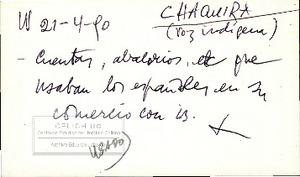 W 21-4-90
CHAQUIRA
(voz indígena)
- Cuentas, abalorios, etc que
usaban los españoles en su
comercio con is.
CELICH UC
USADO